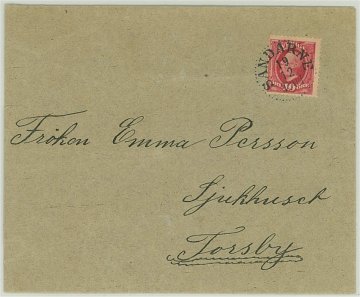 SANDARNE
19
2
10
Fröken Emma Persson
Sjukhuset
Torsby